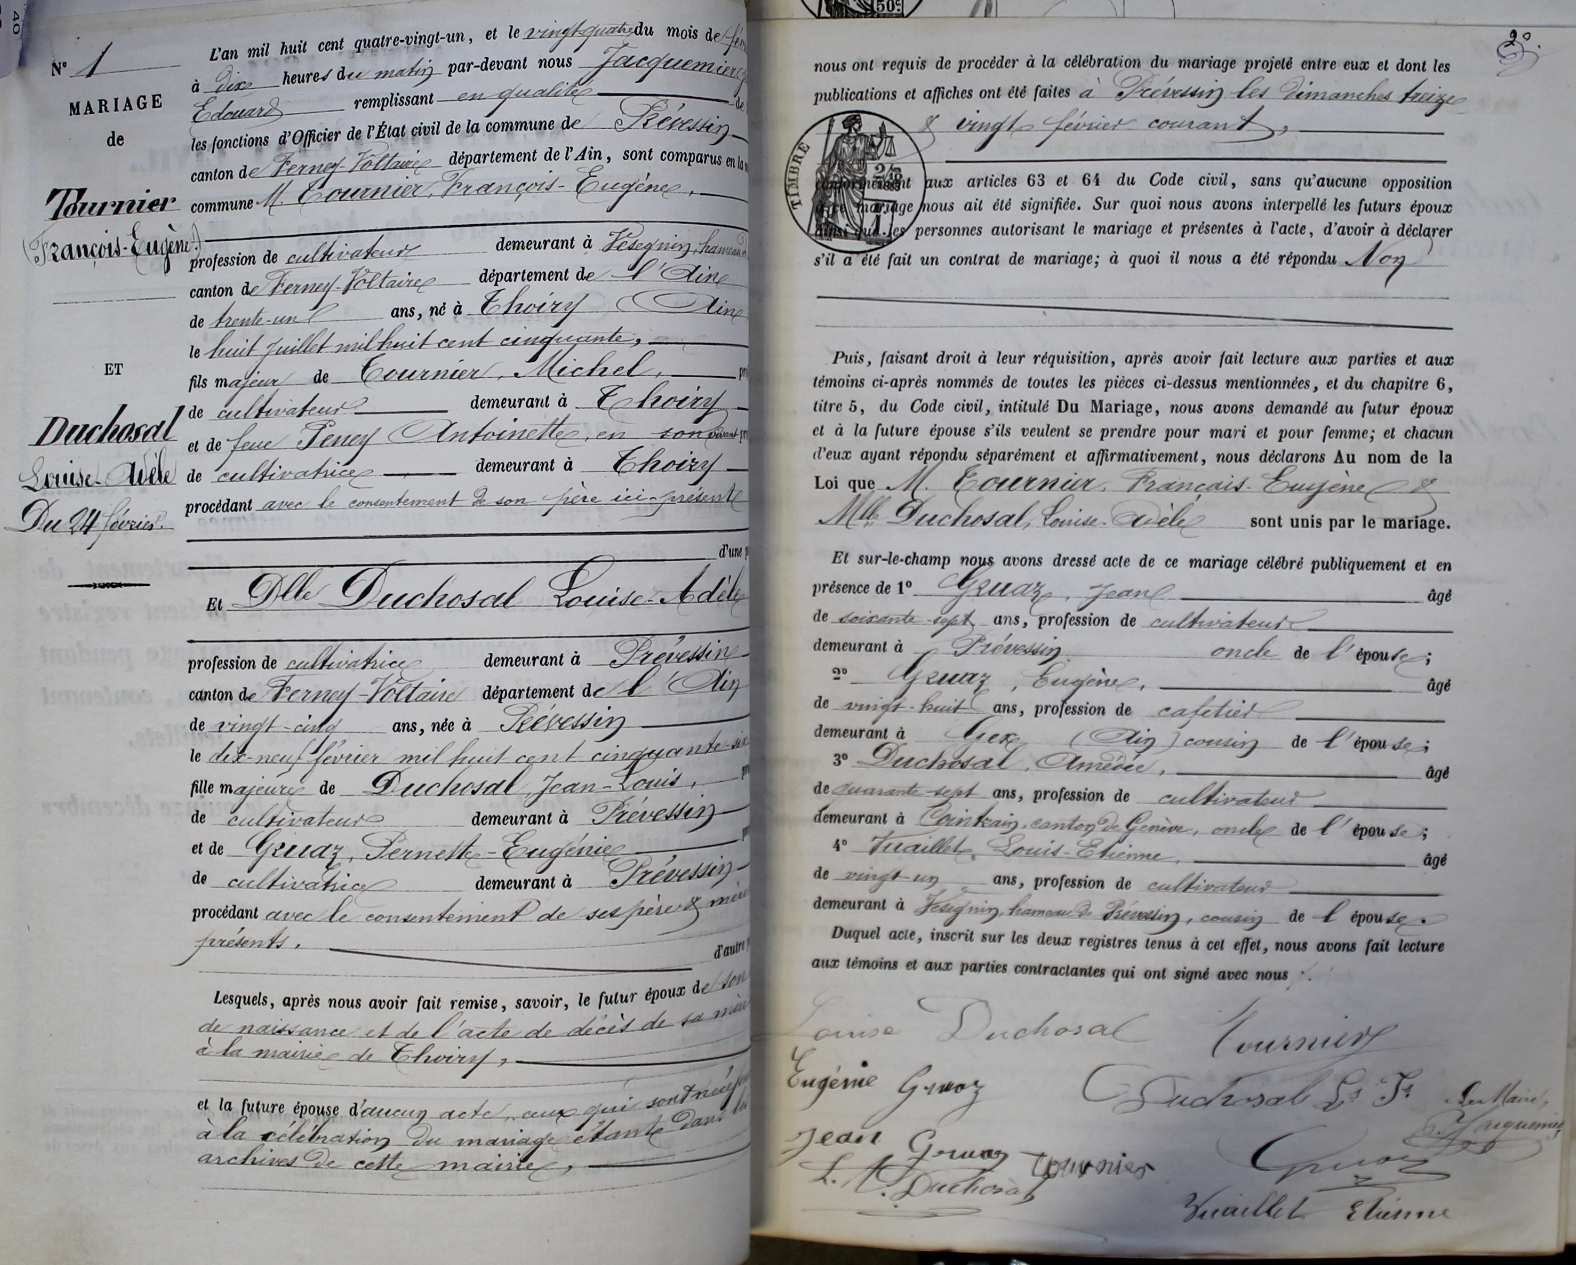 40
N° 1
MARIAGE
de
Tournier
(François-Eugène)
ET
Duchosal
Louise-Adèle
Du 24 février.
L'an mil huit cent quatre-vingt-un, et le vingt-quatre du mois de fév
à dix heures du matin par-devant nous Jacquemier
Edouard remplissant en qualité de
les fonctions d'Officier de l'État civil de la commune de Prévessin
canton de Ferney-Voltaire département de l'Ain, sont comparus en la
commune M. Tournier, François-Eugène,
profession de cultivateur demeurant à Vésegnin, hameau d
canton de Ferney-Voltaire département de l'Ain
de trente-un ans, né à Thoiry (Ain
le huit Juillet mil huit cent cinquante,
fils majeur de Tournier, Michel,
de cultivateur demeurant à Thoiry
et de feue Peney Antoinette, en son vivant
de cultivatrice demeurant à Thoiry
procédant avec le consentement de son père ici-présent
d'une
Et Dlle Duchosal Louise-Adèle
profession de cultivatrice demeurant à Prévessin
canton de Ferney-Voltaire département de l'Ain
de vingt-cinq ans, née à Prévessin
le dix-neuf février mil huit cent cinquante-six
fille majeure de Duchosal, Jean-Louis,
de cultivateur demeurant à Prévessin
et de Gruaz, Pernette-Eugénie
de cultivatrice demeurant à Prévessin
procédant avec le consentement de ses père & mère
présents. d'autre
Lesquels, après nous avoir fait remise, savoir, le futur époux de son
de naissance et de l'acte de décès de sa mère
à la mairie de Thoiry,
et la future épouse d'aucun acte, ceux qui sont
à la célébration du mariage étant dans les
archives de cette mairie,
50c
20.
nous ont requis de procéder à la célébration du mariage projeté entre eux et dont les
publications et affiches ont été faites à Prévessin les dimanches treize
& vingt février courant,
TIMBRE
conformément aux articles 63 et 64 du Code civil, sans qu'aucune opposition
audit mariage nous ait été signifiée. Sur quoi nous avons interpellé les futurs époux
ainsi que les personnes autorisant le mariage et présentes à l'acte, d'avoir à déclarer
s'il a été fait un contrat de mariage; à quoi il nous a été répondu Non
Puis, faisant droit à leur réquisition, après avoir fait lecture aux parties et aux
témoins ci-après nommés de toutes les pièces ci-dessus mentionnées, et du chapitre 6,
titre 5, du Code civil, intitulé Du Mariage, nous avons demandé au futur époux
et à la future épouse s'ils veulent se prendre pour mari et pour femme; et chacun
d'eux ayant répondu séparément et affirmativement, nous déclarons Au nom de la
Loi que M. Tournier, François-Eugène &
Mlle Duchosal, Louise-Adèle sont unis par le mariage.
Et sur-le-champ nous avons dressé acte de ce mariage célébré publiquement et en
présence de 1° Gruaz, Jean âgé
de soixante-sept ans, profession de cultivateur
demeurant à Prévessin oncle de l'épouse;
2° Gruaz, Eugène, âgé
de vingt-huit ans, profession de cafetier
demeurant à Gex (Ain) cousin de l'épouse;
3° Duchosal, Amédée, âgé
de quarante-sept ans, profession de cultivateur
demeurant à Cointrin, canton de Genève, oncle de l'épouse;
4° Vuaillet, Louis-Etienne, âgé
de vingt-un ans, profession de cultivateur
demeurant à Vésegnin, hameau de Prévessin, cousin de l'épouse.
Duquel acte, inscrit sur les deux registres tenus à cet effet, nous avons fait lecture
aux témoins et aux parties contractantes qui ont signé avec nous
Louise Duchosal Tournier
Eugénie Gruaz Duchosal Ls Js Le Maire,
Jean Gruaz Tournier Gruaz
Duchosal
Vuaillet Etienne